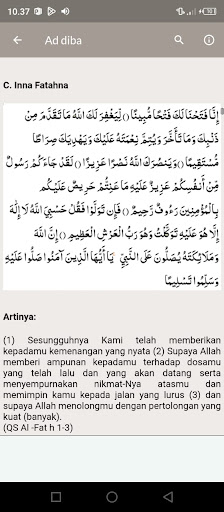 10.37
90
Ad diba
C. Inna Fatahna
إِنَّا فَتَحْنَا لَكَ فَتْحًا مُّبِينًا () لِيَغْفِرَ لَكَ اللهُ مَا تَقَدَّمَ مِنْ
ذَنْبِكَ وَمَا تَأَخَّرَ وَيُتِمَّ نِعْمَتَهُ عَلَيْكَ وَيَهْدِيَكَ صِرَاطًا
مُسْتَقِيمًا () وَيَنْصُرَكَ اللهُ نَصْرًا عَزِيزًا () لَقَدْ جَاءَكُمْ رَسُولٌ
مِنْ أَنفُسِكُمْ عَزِيزٌ عَلَيْهِ مَا عَنِتُّمْ حَرِيصٌ عَلَيْكُم
بِالْمُؤْمِنِينَ رَءُوفٌ رَحِيمٌ () فَإِن تَوَلَّوْا فَقُلْ حَسْبِيَ اللهُ لَا إِلَهَ
إِلَّا هُوَ عَلَيْهِ تَوَكَّلْتُ وَهُوَ رَبُّ الْعَرْشِ الْعَظِيمِ () إِنَّ اللهَ
وَمَلَائِكَتَهُ يُصَلُّونَ عَلَى النَّبِيِّ يَا أَيُّهَا الَّذِينَ آمَنُوا صَلُّوا عَلَيْهِ
وَسَلِّمُوا تَسْلِيمًا
Artinya:
(1) Sesungguhnya Kami telah memberikan
kepadamu kemenangan yang nyata (2) Supaya Allah
memberi ampunan kepadamu terhadap dosamu
yang telah lalu dan yang akan datang serta
menyempurnakan nikmat-Nya atasmu dan
memimpin kamu kepada jalan yang lurus (3) dan
supaya Allah menolongmu dengan pertolongan yang
kuat (banyak).
(QS Al -Fat h 1-3)